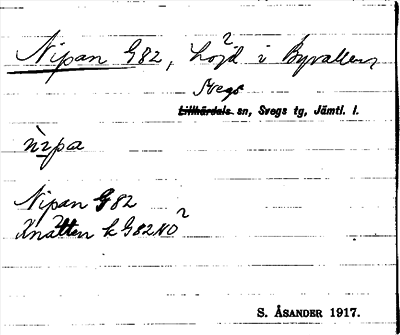 Nipan G82, Löjd i Byvallen,
Svegs
Lillhärdals sn, Svegs tg, Jämtl. l.
nipa
Nipan G82
Knätten k G82NO ?
S. ÅSANDER 1917.